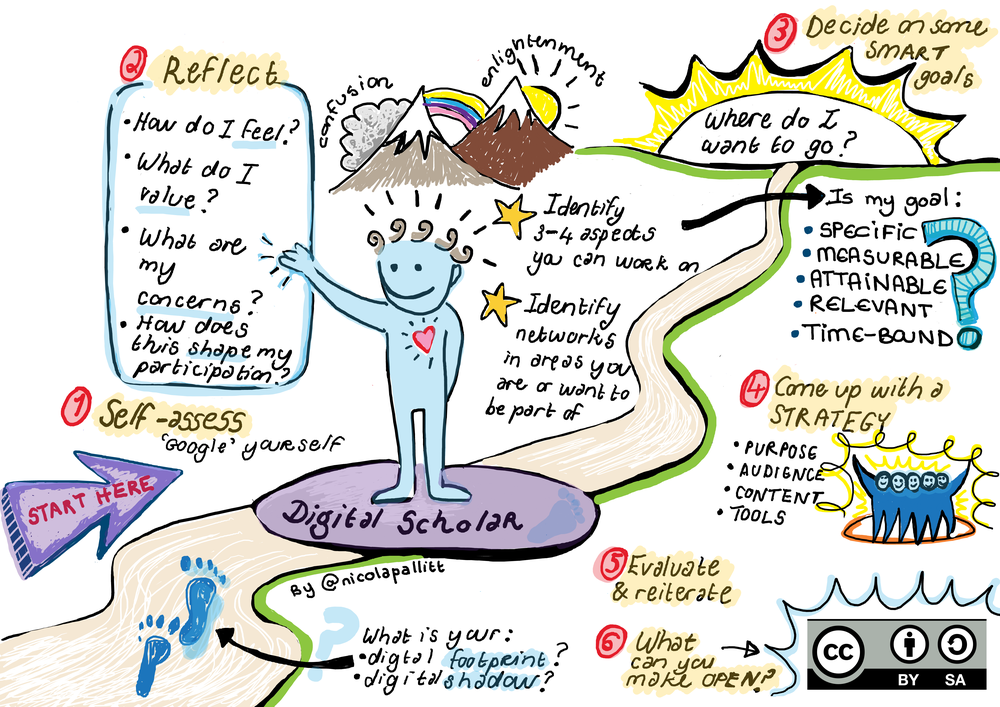 START HERE
1
Self-assess
'Google' yourself
2
Reflect
• How do I feel?
• What do I
value?
• What are
my
concerns?
• How does
this shape my
participation?
confusion
enlightenment
Identify
3-4 aspects
you can work on
Identify
networks
in areas you
are or want to
be part of
Digital Scholar
By @nicolapallitt
What is your:
• digtal footprint?
• digital shadow?
?
3
Decide on some
SMART
goals
Where do I
want to go?
Is my goal:
• SPECIFIC
• MEASURABLE
• ATTAINABLE
• RELEVANT
• TIME-BOUND
?
4
Come up with a
STRATEGY
• PURPOSE
• AUDIENCE
• CONTENT
• TOOLS
5
Evaluate
& reiterate
6
What
can you
make OPEN?
cc
BY SA